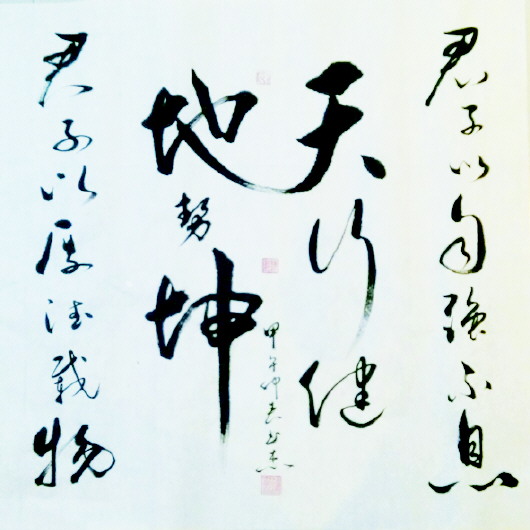 君子以自強不息
天行健
甲午仲春
地勢坤
君子以厚德載物